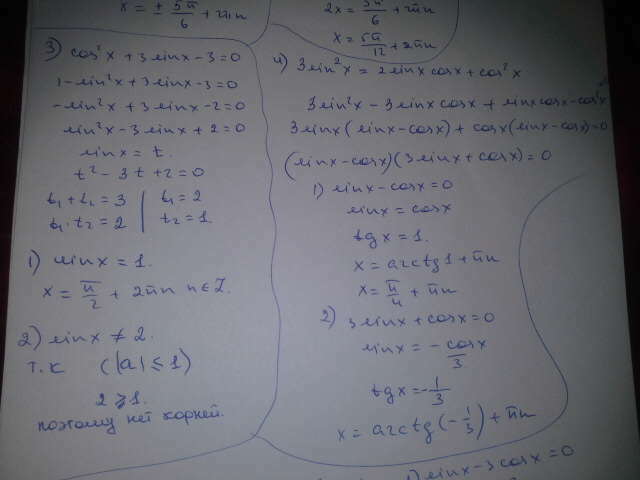 x = ± 5π/6 + 2πn
2x = 5π/6 + 2πn
x = 5π/12 + 2πn
3) cos²x + 3 sinx - 3 = 0
1 - sin²x + 3 sinx - 3 = 0
- sin²x + 3 sinx - 2 = 0
sin²x - 3 sinx + 2 = 0
sinx = t.
t² - 3t + 2 = 0
t₁ + t₂ = 3 | t₁ = 2
t₁ · t₂ = 2 | t₂ = 1.
1) sinx = 1.
x = π/2 + 2πn n∈Z.
2) sinx ≠ 2.
т.к (|a| ≤ 1)
2 ⩾ 1.
поэтому нет корней.
4) 3sin²x = 2sinx cosx + cos²x
3sin²x - 3sinx cosx + sinx cosx - cos²x
3sinx (sinx - cosx) + cosx (sinx - cosx) = 0
(sinx - cosx)(3sinx + cosx) = 0
1) sinx - cosx = 0
sinx = cosx
tgx = 1.
x = arctg1 + πn
x = π/4 + πn
2) 3sinx + cosx = 0
sinx = - cosx/3
tgx = - 1/3
x = arctg(- 1/3) + πn
sinx - 3 cosx = 0